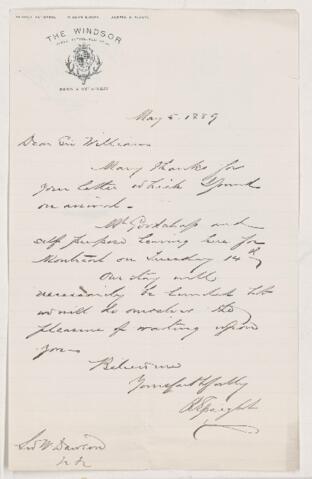 THE WINDSOR
May 5. 1889
Dear Sir William
Many thanks for
your letter which I found
on arrival.
Mr and
self purpose leaving here for
Montreal on Tuesday 14th
Our stay will
necessarily be limited but
we will do ourselves the
pleasure of waiting upon
you
Believe me
Yours faithfully
Sir W. Dawson